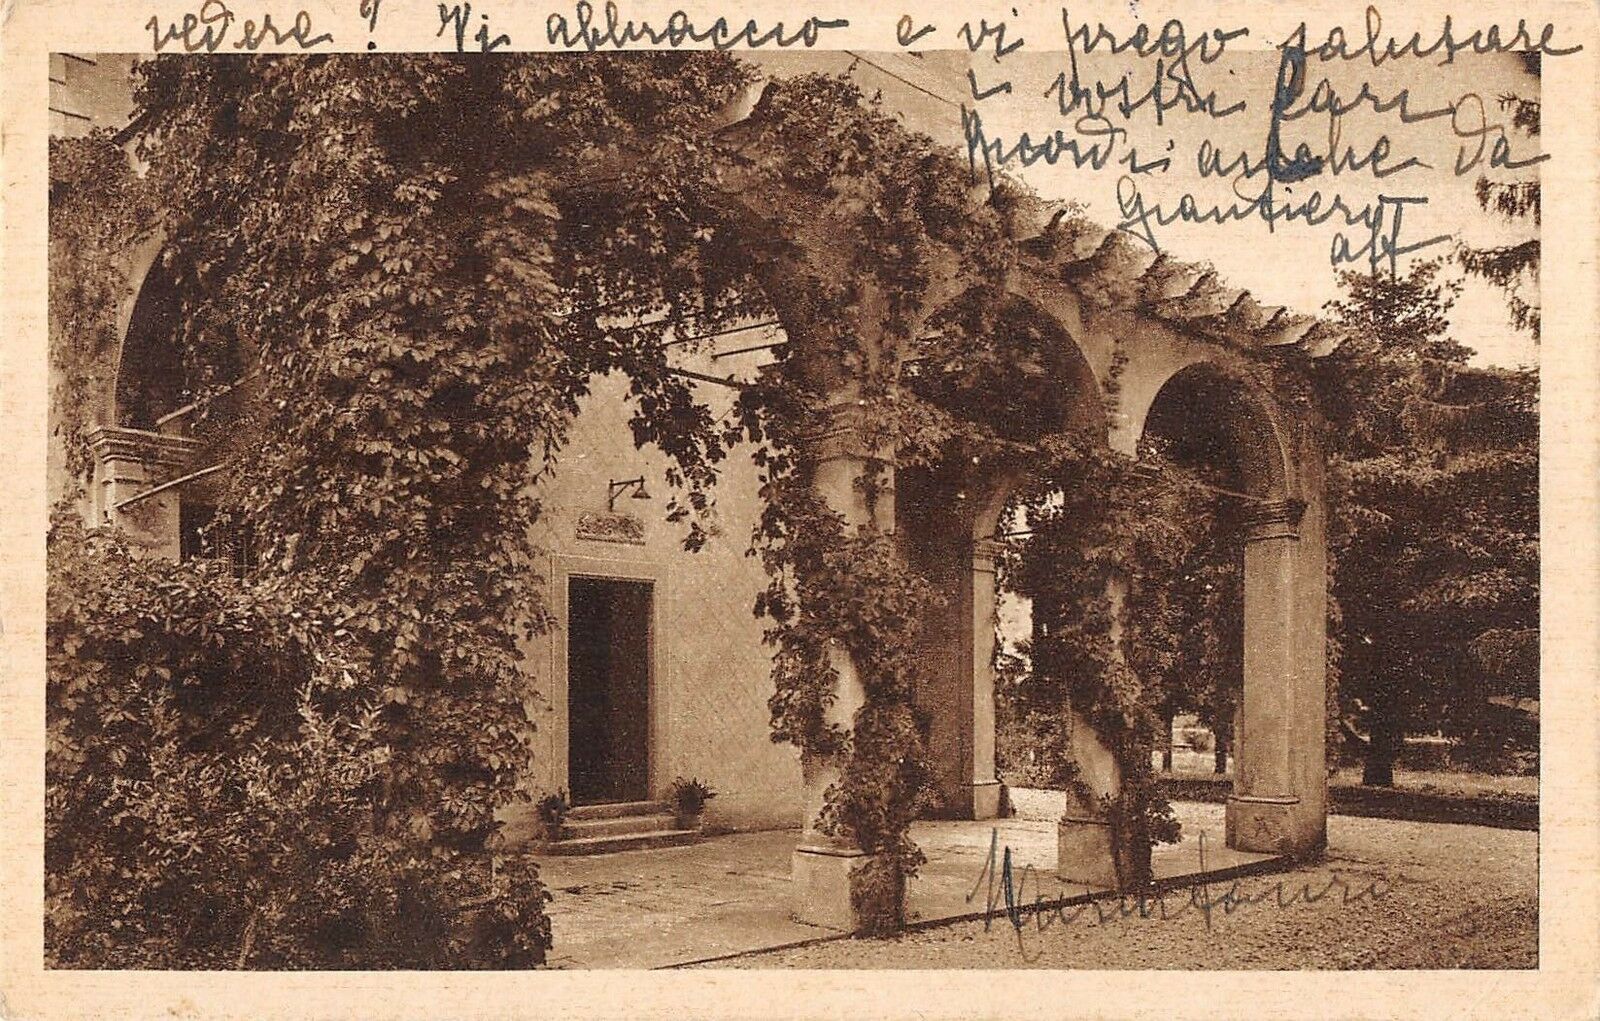 vedere? Vi abbraccio e vi prego salutare
i vostri Cari
Ricordi anche da
Gianpiero
aff